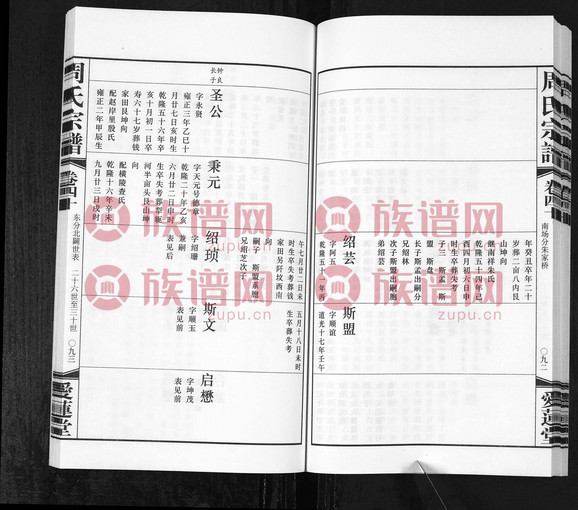 周氏宗谱
卷四十
南场分朱家桥
〇九二
爱莲堂
绍芸
字阿五
年癸丑卒年二十
岁葬二亩八内艮
山坤向
继南祥朱氏
乾隆五十四年己
酉四月初六日申
时生卒葬失考
子三 斯孟 斯
盟 斯盘
长子斯孟出嗣
兄绍林
次子斯盟出嗣胞
弟绍芸
斯盟
字顺谊
道光十七年壬
午七月廿二日未
时生卒失考葬钱
家田另阡坟西南
向
嗣子 斯盟系胞
兄绍芝次子
五月十八日未时
生卒葬失考
钟良
长子
圣公
字永贤
雍正三年乙巳十
月廿七日亥时生
乾隆五十六年辛
亥十月初一日卒
寿六十七岁葬钱
家田艮坤向
配赵岸里殷氏
雍正二年甲辰生
秉元
字天元号德章
乾隆二十年乙亥
六月廿二日申时
生卒失考葬犁瓶
河半亩头艮山坤
向
配横陵查氏
乾隆十六年辛未
九月廿三日戌时
绍顼
字绍珊
兼嗣
表见后
斯文
字顺玉
表见前
启懋
字坤茂
表见前
周氏宗谱
卷四十
东分北圖世表
二十六世至三十世
〇九三
爱莲堂
族谱网
zupu.cn
族谱网
zupu.cn
族谱网
zupu.cn
族谱网
zupu.cn